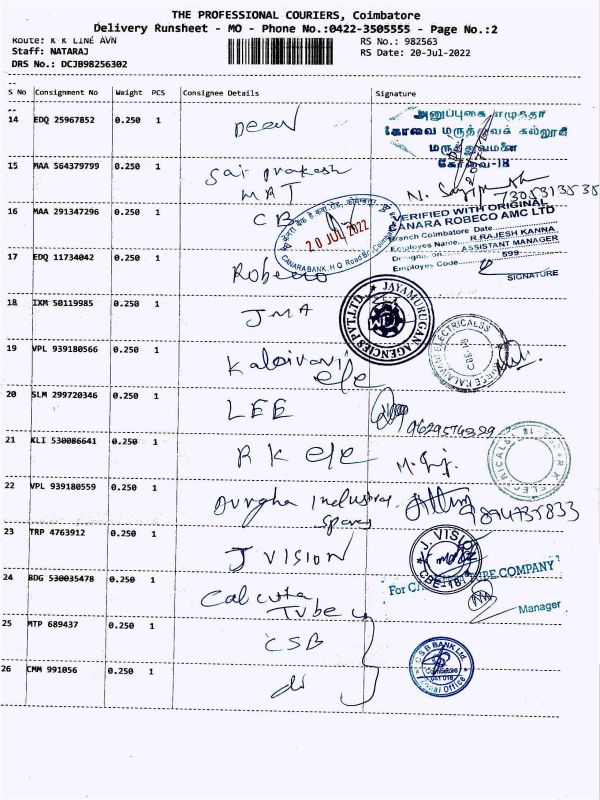 THE PROFESSIONAL COURIERS, Coimbatore
Delivery Runsheet - MO - Phone No.:0422-3505555 - Page No.:2
Route: K K LINE AVN
RS No.: 982563
Staff: NATARAJ
RS Date: 20-Jul-2022
DRS No.: DCJB98256302
S No Consignment No Weight PCS Consignee Details Signature
14 EDQ 25967852 0.250 1 Dean
அனுப்புகை எழுத்தர்
கோவை மருத்துவக் கல்லூரி
மருத்துவமனை
கோவை-18
15 MAA 564379799 0.250 1 Sai prakash
MAT
16 MAA 291347296 0.250 1 CB
20 JUL 2022
CANARA BANK, H.O. Road Br.,
VERIFIED WITH ORIGINAL
CANARA ROBECO AMC LTD
Branch Coimbatore Date
Employee Name R.RAJESH KANNA
Designation ASSISTANT MANAGER
Employee Code 599
SIGNATURE
17 EDQ 11734042 0.250 1 Robeco
18 IXM 50119985 0.250 1 JMA
JAYAMURUGAN AGENCIES PVT.LTD.
19 VPL 939180566 0.250 1 Kalaivani
e/e
20 SLM 299720346 0.250 1 LEE
21 KLI 530086641 0.250 1 R K e/e
22 VPL 939180559 0.250 1 Durgha Industrial
spares
9894735833
23 TRP 4763912 0.250 1 J VISION
J. VISION
CBE-18
24 BDG 530035478 0.250 1 Calcutta
Tube
For
COMPANY
Manager
25 MTP 689437 0.250 1 CSB
26 CMM 991056 0.250 1 do
CSB BANK Ltd.
Zonal Office